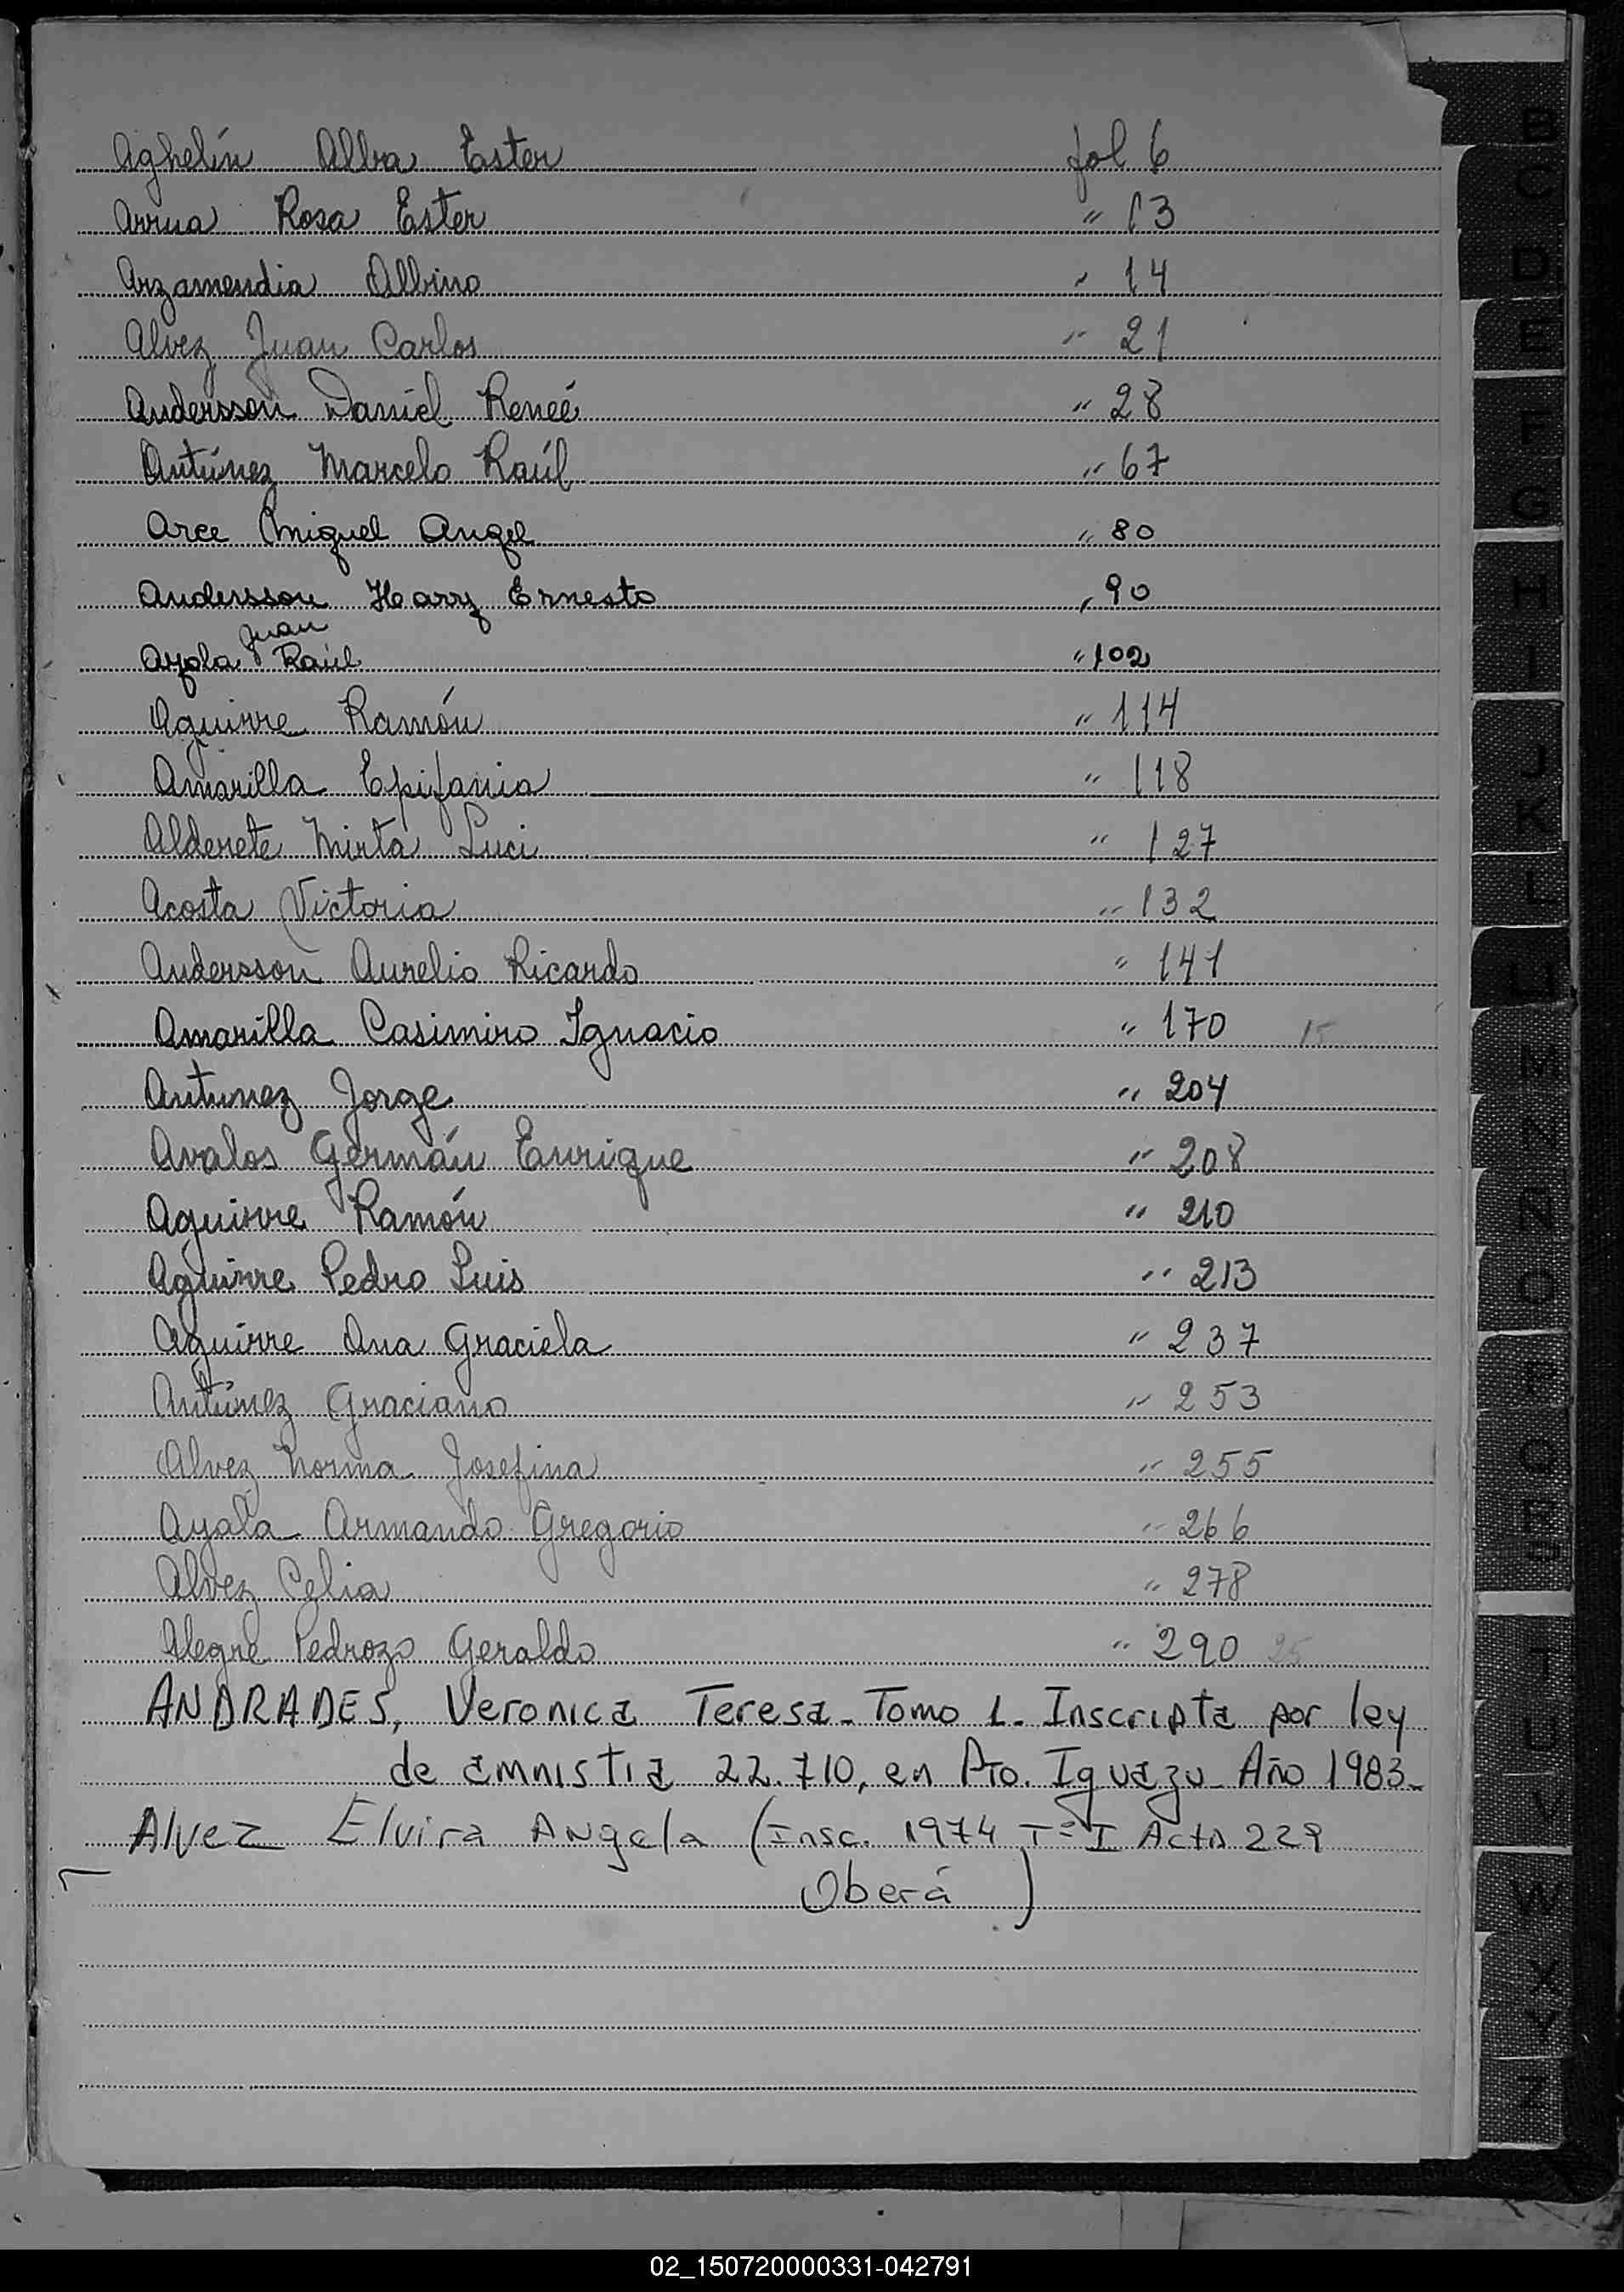 Aghelín Alba Ester fol 6
Arrua Rosa Ester " 13
Arzamendia Albino " 14
Alvez Juan Carlos " 21
Andersson Daniel Reneé " 28
Antúnez Marcelo Raúl " 67
Arce Miguel Angel " 80
Andersson Harry Ernesto " 90
Juan
Ayala Raúl " 102
Aguirre Ramón " 114
Amarilla Epifania " 118
Alderete Mirta Luci " 127
Acosta Victoria " 132
Andersson Aurelio Ricardo " 141
Amarilla Casimiro Ignacio " 170 15
Antunez Jorge " 204
Avalos Germán Enrique " 208
Aguirre Ramón " 210
Aguirre Pedro Luis " 213
Aguirre Ana Graciela " 237
Antúnez Graciano " 253
Alvez Norma Josefina " 255
Ayala Armando Gregorio " 266
Alvez Celia " 278
Alegre Pedrozo Geraldo " 290 25
ANDRADES, Veronica Teresa - Tomo 1. Inscripta por ley
de amnistia 22.710, en Pto. Iguazu - Año 1983 -
Alvez Elvira Angela (Insc. 1974 Tº I Acta 229
Oberá )
B
C
D
E
F
G
H
I
J
K
L
LL
M
N
Ñ
O
P
Q
R
S
T
U
V
W
X
Y
Z
02_150720000331-042791